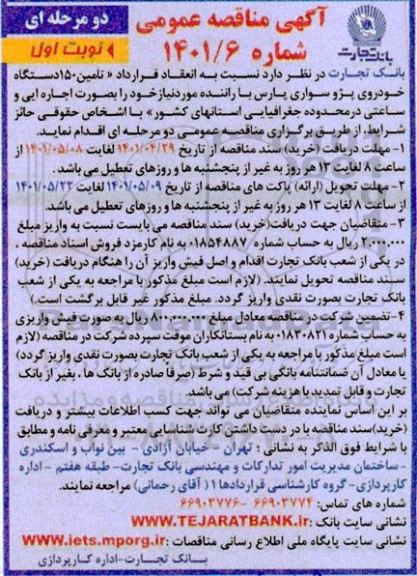 آگهی مناقصه عمومی
شماره ۱۴۰۱/۶
دو مرحله ای
نوبت اول
بانک تجارت
بانک تجارت در نظر دارد نسبت به انعقاد قرارداد « تامین۱۵۰دستگاه
خودروی پژو سواری پارس با راننده موردنیازخود را بصورت اجاره ایی و
ساعتی درمحدوده جغرافیایی استانهای کشور» با اشخاص حقوقی حائز
شرایط، از طریق برگزاری مناقصه عمومی دو مرحله ای اقدام نماید.
۱- مهلت دریافت (خرید) سند مناقصه از تاریخ ۱۴۰۱/۰۴/۲۹ لغایت ۱۴۰۱/۰۵/۰۸ از
ساعت ۸ لغایت ۱۳ هر روز به غیر از پنجشنبه ها و روزهای تعطیل می باشد.
۲- مهلت تحویل (ارائه) پاکت های مناقصه از تاریخ ۱۴۰۱/۰۵/۰۹ لغایت ۱۴۰۱/۰۵/۲۲
از ساعت ۸ لغایت ۱۳ هر روز به غیر از پنجشنبه ها و روزهای تعطیل می باشد.
۳- متقاضیان جهت دریافت(خرید) سند مناقصه می بایست نسبت به واریز مبلغ
۲.۰۰۰.۰۰۰ ریال به حساب شماره ۰۱۸۵۴۸۸۷ به نام کارمزد فروش اسناد مناقصه ،
در یکی از شعب بانک تجارت اقدام و اصل فیش واریز آن را هنگام دریافت (خرید)
سند مناقصه تحویل نمایند. (لازم است مبلغ مذکور با مراجعه به یکی از شعب
بانک تجارت بصورت نقدی واریز گردد. مبلغ مذکور غیر قابل برگشت است.)
۴- تضمین شرکت در مناقصه معادل مبلغ ۸۰۰.۰۰۰.۰۰۰ ریال به صورت فیش واریزی
به حساب شماره ۰۱۸۳۰۸۲۱ به نام بستانکاران موقت سپرده شرکت در مناقصه (لازم
است مبلغ مذکور با مراجعه به یکی از شعب بانک تجارت بصورت نقدی واریز گردد)
یا معادل آن ضمانتنامه بانکی بی قید و شرط (صرفا صادره از بانک ها ، بغیر از بانک
تجارت و قابل تمدید با هزینه شرکت) می باشد.
بر این اساس نماینده متقاضیان می تواند جهت کسب اطلاعات بیشتر و دریافت
(خرید)سند مناقصه با در دست داشتن کارت شناسایی معتبر و معرفی نامه و مطابق
با شرایط فوق الذکر به نشانی : تهران - خیابان آزادی - بین نواب و اسکندری
-ساختمان مدیریت امور تدارکات و مهندسی بانک تجارت- طبقه هفتم - اداره
کارپردازی- گروه کارشناسی قراردادها ۱ ( آقای رحمانی) مراجعه نمایند.
شماره های تماس: ۶۶۹۰۳۷۷۴ -۶۶۹۰۳۷۷۶
نشانی سایت بانک : WWW.TEJARATBANK.ir
نشانی سایت پایگاه ملی اطلاع رسانی مناقصات : www.iets.mporg.ir
بانک تجارت-اداره کارپردازی